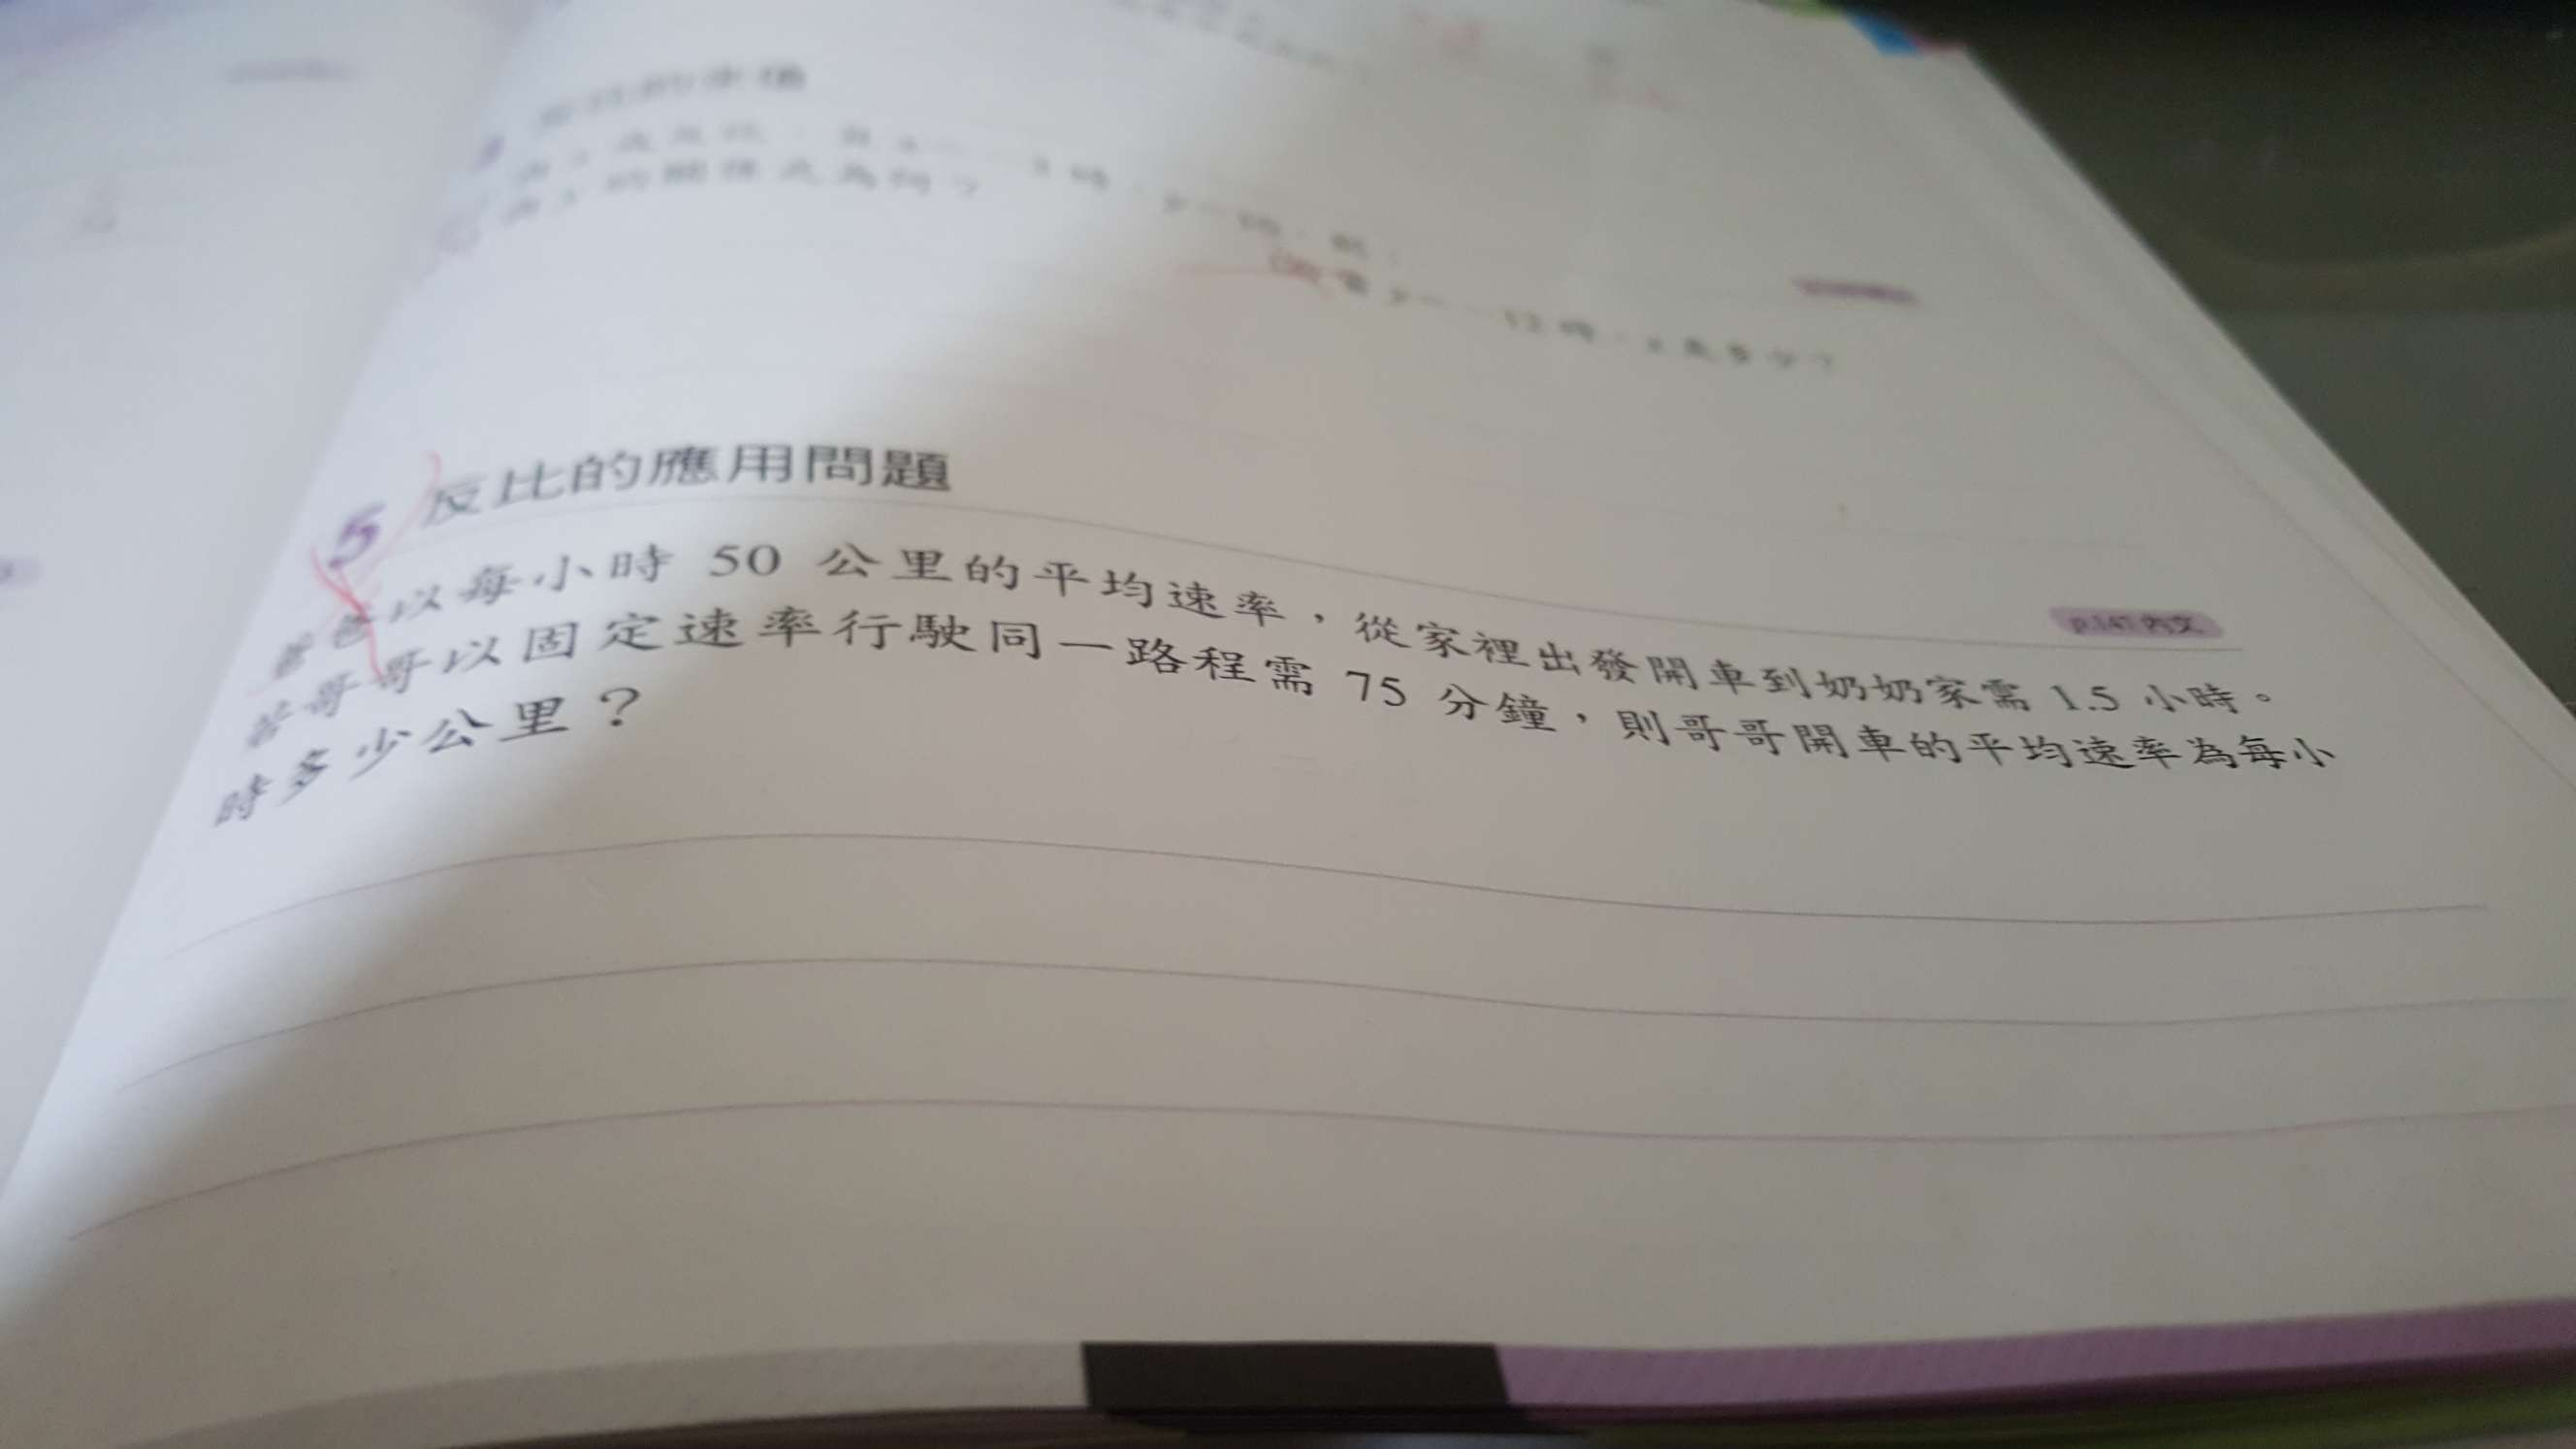 的關係式為何？
12時，x是多少？
5 反比的應用問題
p.147內文
爸爸以每小時 50 公里的平均速率，從家裡出發開車到奶奶家需 1.5 小時。
若哥哥以固定速率行駛同一路程需 75 分鐘，則哥哥開車的平均速率為每小
時多少公里？